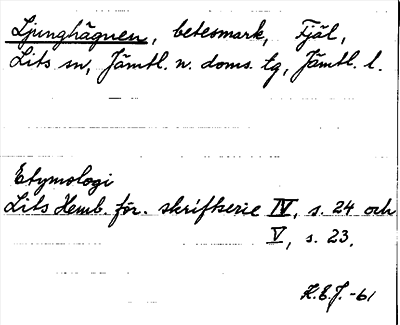 Ljunghägnen, betesmark, Fjäl,
Lits sn, Jämtl. n. doms. tg, Jämtl. l.
Etymologi
Lits Hemb. för. skriftserie IV, s. 24 och
V, s. 23.
K.E.J. -61